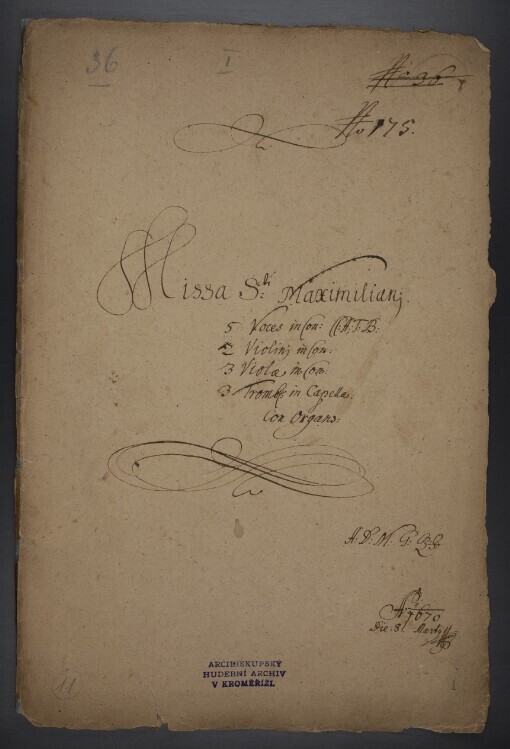 36 I No 36
No 175.
Missa S.ti Maximiliani
5 Voces in Con: CC.A.T.B:
2 Violini in Con:
3 Violæ in Con:
3 Tromb: in Capella.
Con Organo:
A. D. M. G.
A 1670
Die 8 Martij
ARCIBISKUPSKÝ
HUDEBNÍ ARCHIV
V KROMĚŘÍŽI.
11 1